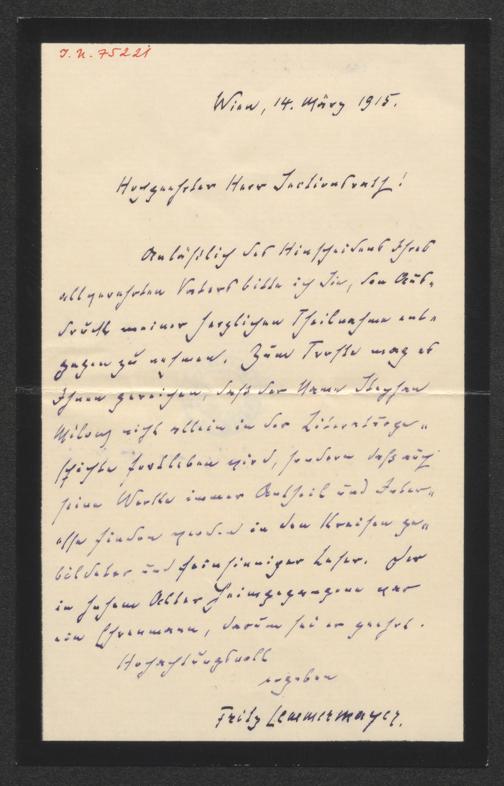 J. N. 75221
Wien, 14. März 1915.
Hochgeehrter Herr Sectionsrath!
Anläßlich des Hinscheidens Ihres
allverehrten Vaters bitte ich Sie, den Aus-
druck meiner herzlichen Theilnahme ent-
gegen zu nehmen. Zum Troste mag es
Ihnen gereichen, daß der Name Stephan
Milow nicht allein in der Literaturge-
schichte fortleben wird, sondern daß auch
seine Werke immer Antheil und Inter-
esse finden werden in den Kreisen ge-
bildeter und feinsinniger Leser. Der
in hohem Alter Heimgegangene war
ein Ehrenmann, darum sei er geehrt.
Hochachtungsvoll
ergeben
Fritz Lemmermayer.